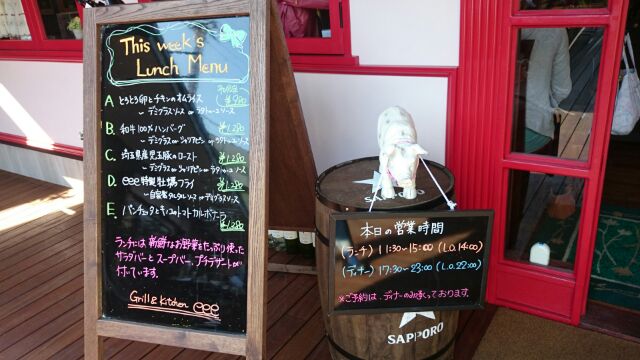 This week's
Lunch Menu
A とろとろ卵とチキンのオムライス ¥980
～デミグラスソース or ラタトゥーユソース
B 和牛100%ハンバーグ ¥1,280
～デミグラス or ジャリアピン or ラタトゥーユソース
C 埼玉県産児玉豚のロースト ¥1,280
～デミグラス or ジャリアピン or ラタトゥーユソース
D eee特製牡蠣フライ ¥1,280
～自家製タルタルソース or デミグラスソース
E パンチェッタとキノコのトマトカルボナーラ ¥1,280
ランチには新鮮なお野菜をたっぷり使った
サラダバーとスープバー、プチデザートが
付いています。
Grill & Kitchen eee
SAPPORO
本日の営業時間
(ランチ) 11:30～15:00 (L.O.14:00)
(ディナー) 17:30～23:00 (L.O.22:00)
※ご予約は、ディナーのみ承っております。
SAPPORO